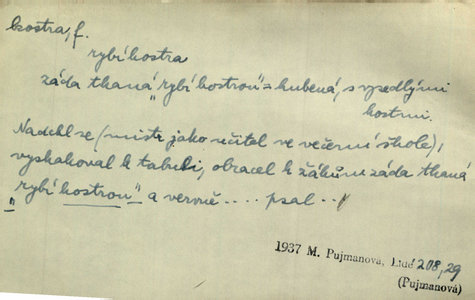 kostra, f.
rybí kostra
záda tkaná „rybí kostrou" = hubená, s vysedlými
kostmi.
Nadchl se (mistr jako učitel ve večerní škole),
vyskakoval k tabuli, obracel k žákům záda tkaná
„rybí kostrou" a vervně .... psal ...
1937 M. Pujmanová, Lidé 208, 29
(Pujmanová)